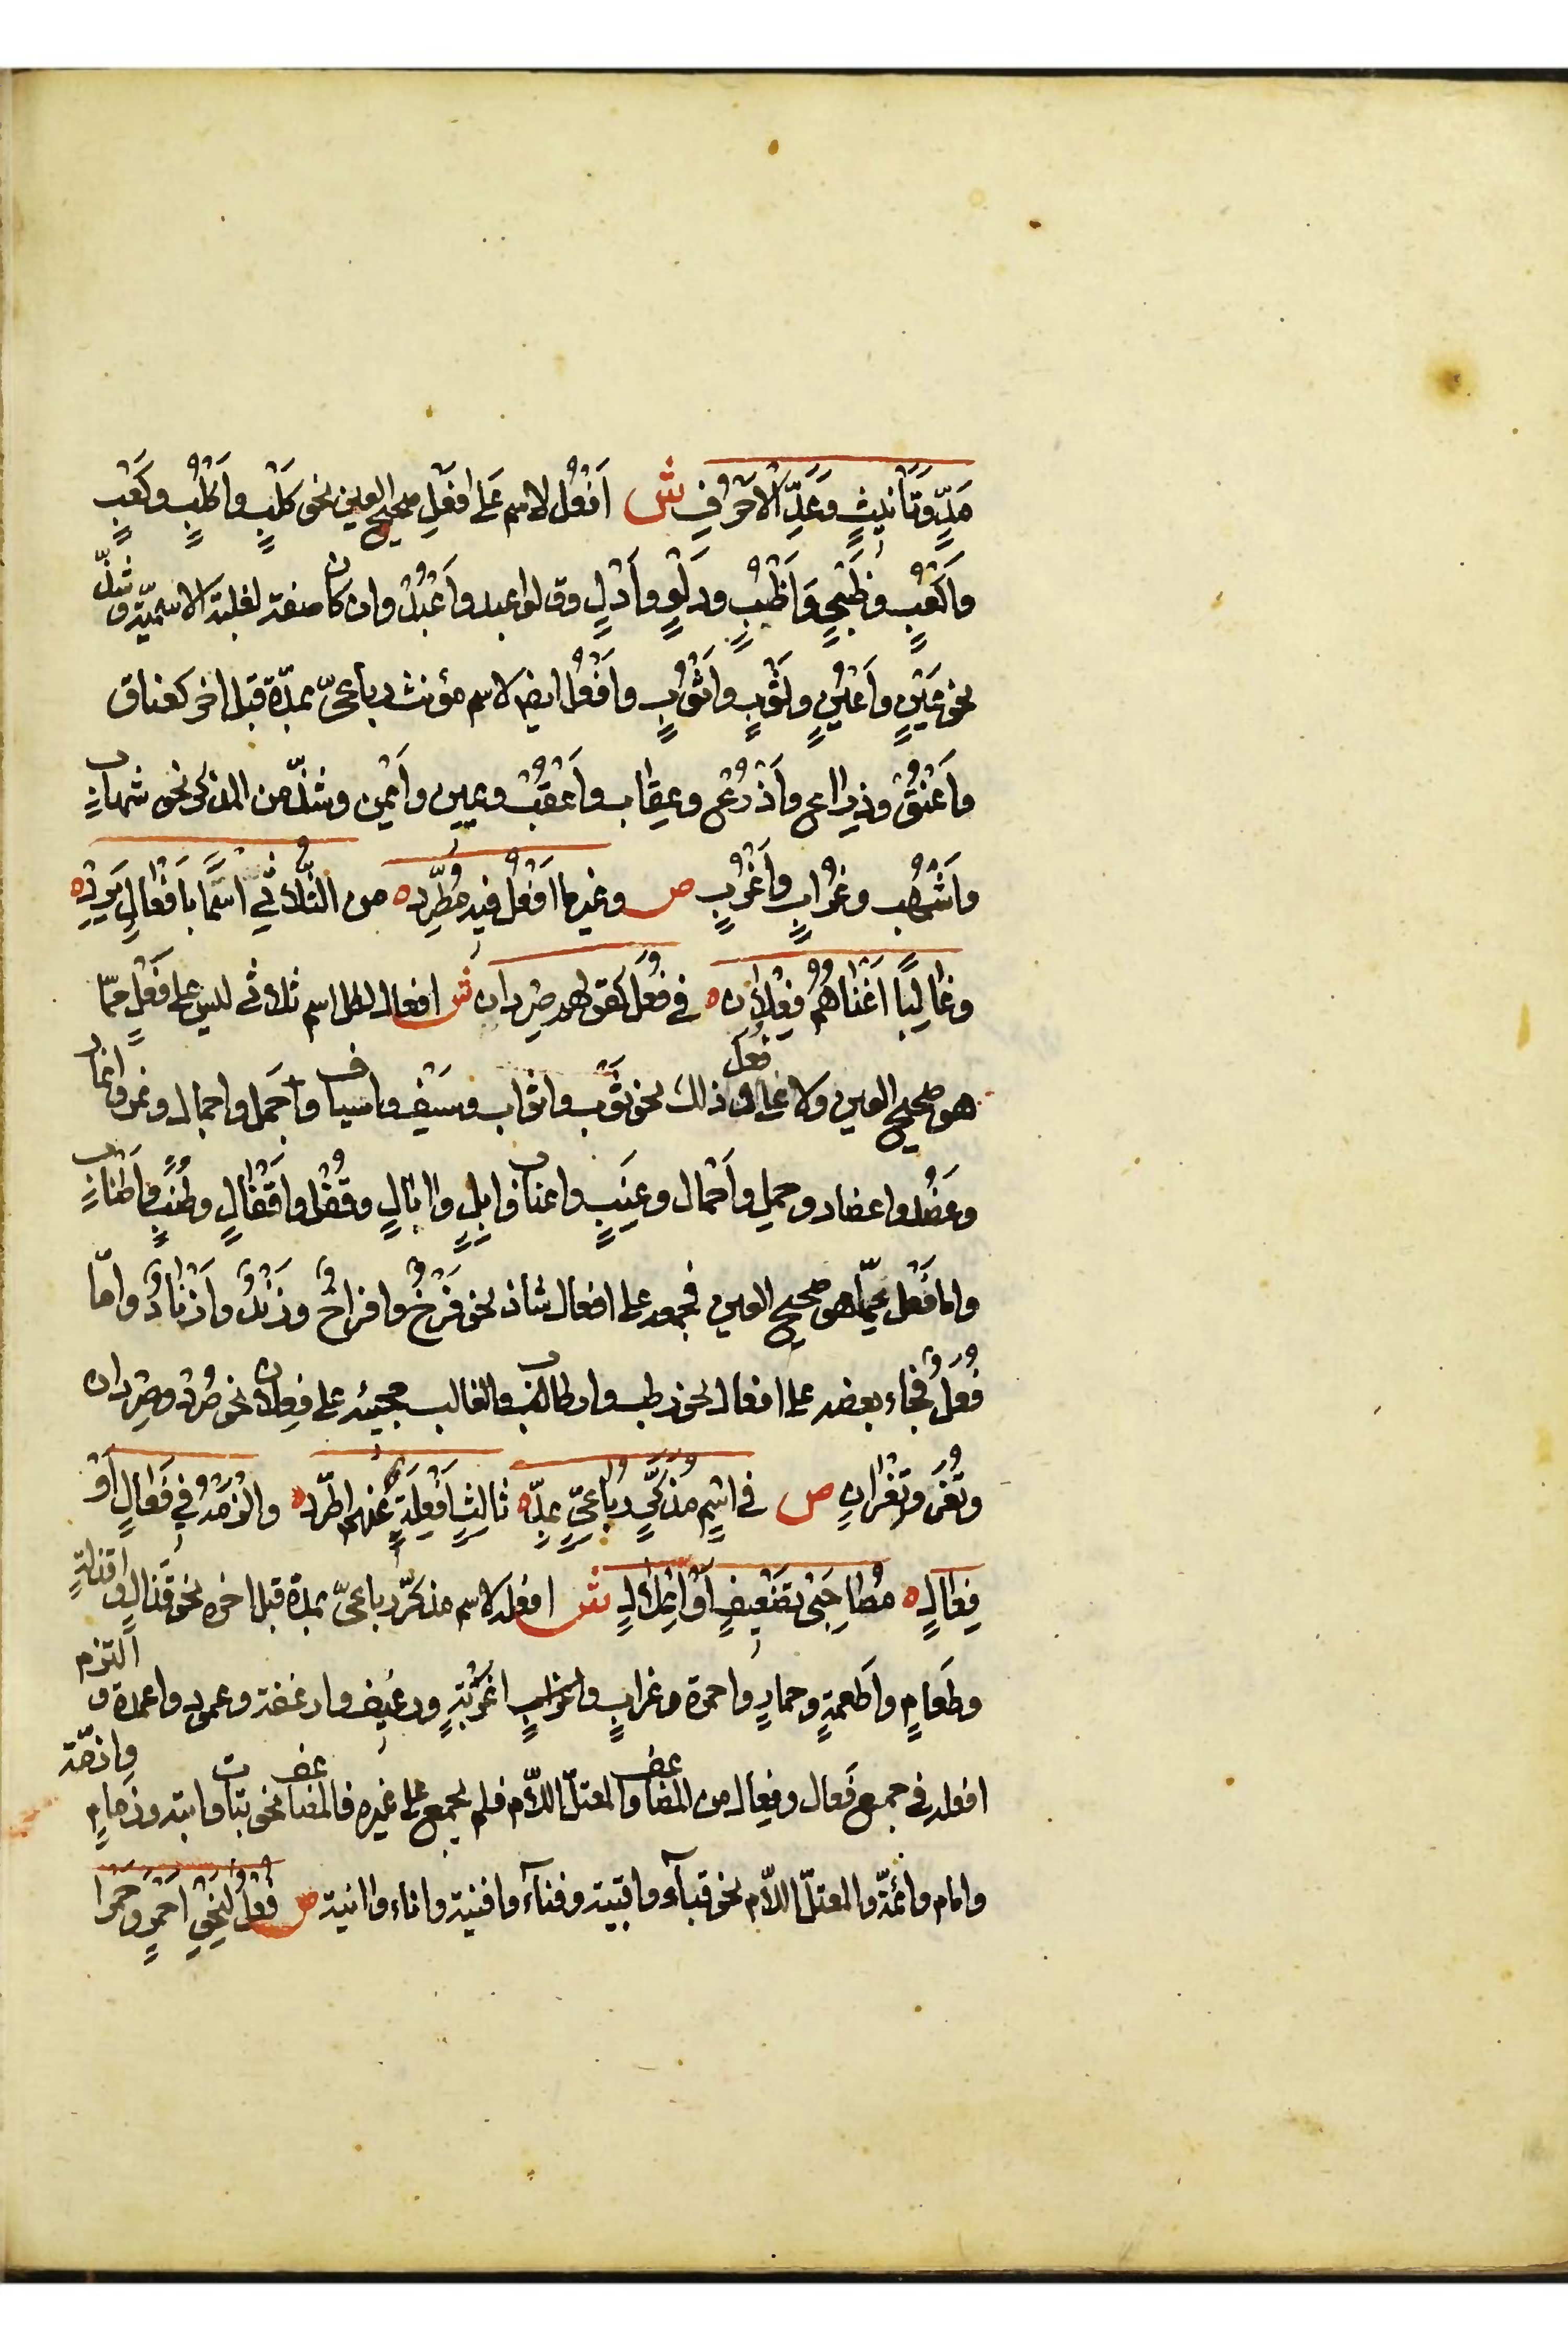 مَدٍّ وَتَأْنِيثٍ وَعَدِّ الْاَحْرُفِ ش اَفْعُل لاسم عَلى افعَلِ صحيح العين نحو كَلْبٍ واَكْلُبٍ وكَعْبٍ
واَكْعُبٍ وظَبْيٍ وَاَظْبٍ ودَلْوٍ واَدْلٍ وقالوا عبد واَعْبُدْ وان كان صفة لغلبة الاسمّية وشذّ
نحو عَيْنٍ واَعْيُنٍ وثَوْبٍ واَثْوُبٍ واَفْعُل ايضا لاسم مؤنث رباعىّ بمدّة قبل اخر كعناق
واَعْنُقْ وذِراع واَذْرُعْ وعِقاب واَعْقُبْ ويمين واَيْمن وشذّ من المذكر نحو شهابٍ
واَشْهُب وغُرابٍ واَغْرُبٍ ص وغير ما اَفْعُل فيه مُطَّرِد ه من الثُّلاثي اسْمًا بِاَفْعَالٍ يَرِدْ ه
وغَالِبًا اَغْنَاهُمُ فِعْلان ه في فُعَلٍ كقولهم صِردان ش افعال لكل اسم ثلاثى ليس على فَعْلٍ ممّا
هو صحيح العين ولا على فُعَل وذلك نحو ثَوْب واثواب وسَيْف واسياف وجَمل واجمال ونمر وانمار
وعَضُد واعضاد وحمل واَحْمال وعِنَبٍ واعناب وابِلٍ واابالٍ وقُفْل واقفالٍ وطُنُبٍ واَطنابٍ
واما فَعْل ممّا هو صحيح العين فجمعه على افعال شاذ نحو فَرْخٌ وافراخٌ وزَنْدٌ واَزْنادٌ وامّا
فُعَلٌ فجاء بعضه على افعال نحو رطب وارطاب والغالب مجيئه على فِعلان نحو صُرَد وصِردان
ونُغَر ونِغْرانٍ ص في اسْمٍ مُذَكَّرٍ رُباعيٍّ بِمَدّ ه ثَالِثٍ اَفْعِلَةٍ عَنْهم اطّرد ه والْزَمْهُ في فَعَالٍ اَوْ
فِعَالٍ ه مُصَاحِبَىْ تَضْعِيفٍ اَوْ اعْلَالٍ ش افعلة لاسم مذكرّ رباعىّ بمدة قبل اخره نحو قَذالٍ واَقذلةٍ
وطَعامٍ واَطعمةٍ وحمارٍ واحمرة وغرابٍ واغْرِبَةٍ ورغيف وارغفة وعمود واعمدة والتزم
افعلة في جمع فَعال وفِعال من المضاعف والمعتلّ اللّام فلم يجمع على غيره فالمضاعف نحو بَتات وابتة وزِمامٍ وازمّة
وامام وائمّة والمعتلّ اللّام نحو قباء واقبية وفناء وافنية واناء واانية ص فُعْلٌ لِنَحْوِ اَحْمَرٍ وَحَمْرا